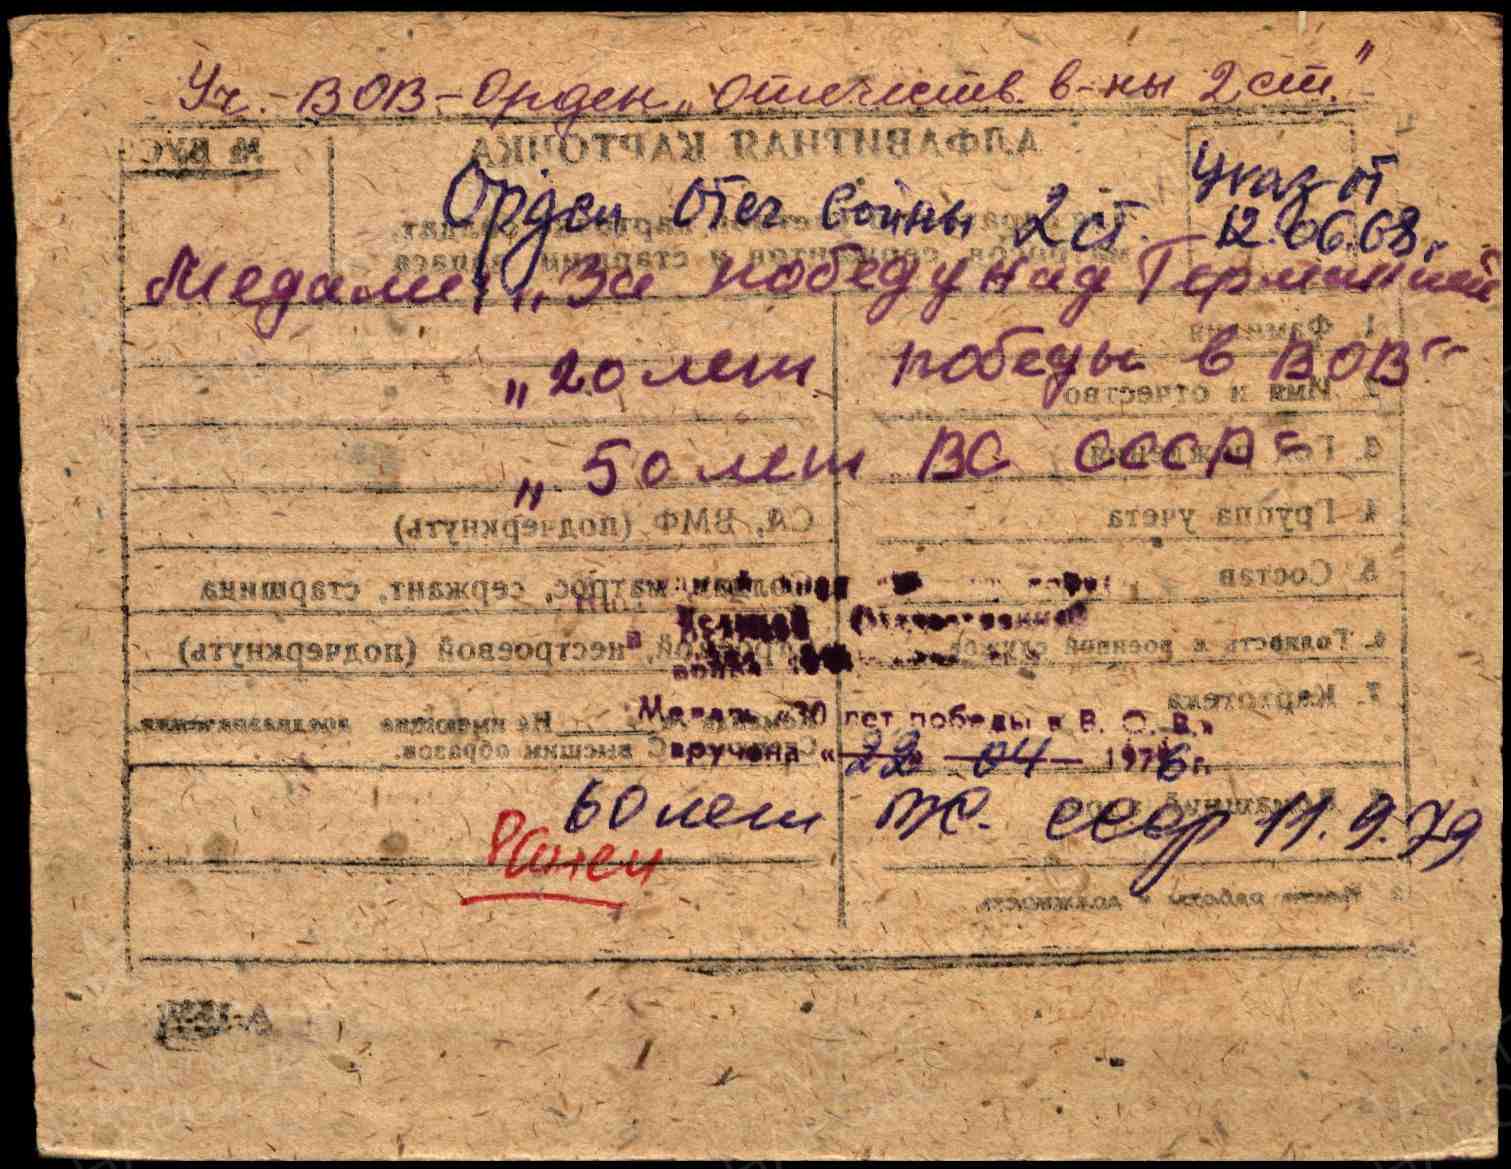 Уч. - ВОВ - Орден „Отечеств. в-ны 2 ст."
Орден Отеч Войны 2 ст. Указ от 12.06.68г.
Медали „За победу над Германией
„20 лет победы в ВОВ"
„50 лет ВС СССР"
Великой Отечественной
войны
Медаль «30 лет победы в В. О. В.»
вручена «22» 04 1976 г.
60 лет ВС. СССР 11.9.79
Ранен
АЛФАВИТНАЯ КАРТОЧКА
№ ВУС
1. Фамилия
2. Имя и отчество
3. Год рождения
4. Группа учета
СА, ВМФ (подчеркнуть)
5. Состав
Солдат, матрос, сержант, старшина
6. Годность к военной службе
строевой, нестроевой (подчеркнуть)
7. Картотека
Не имеющие
С высшим образов.